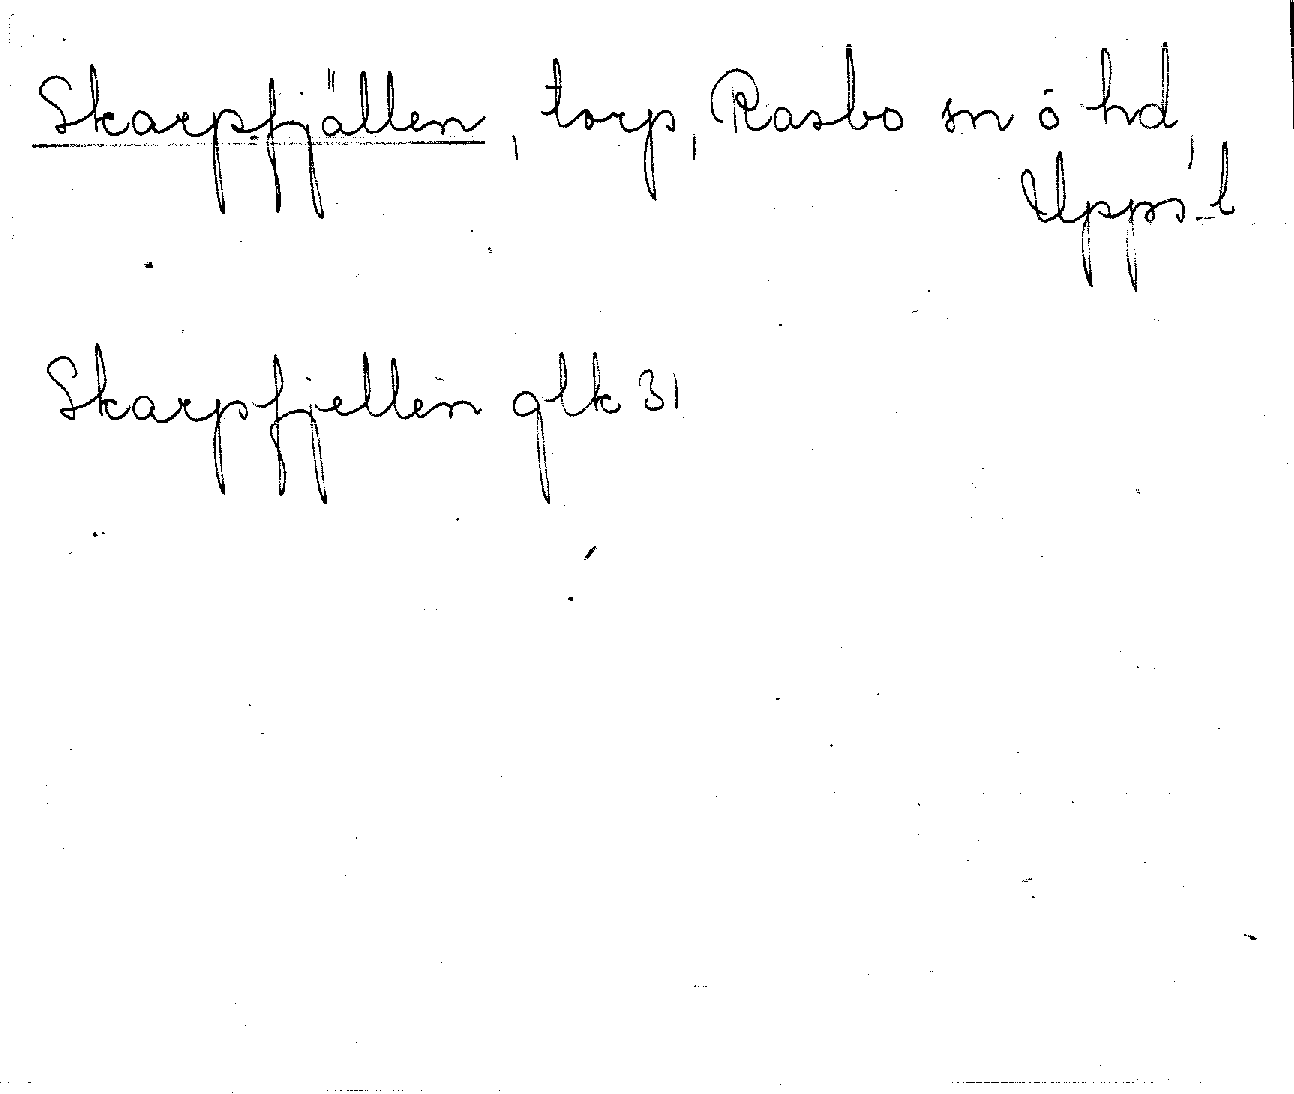 Skarpfjällen, torp, Rasbo sn o hd,
Upps. l
Skarpfjellen glk 31